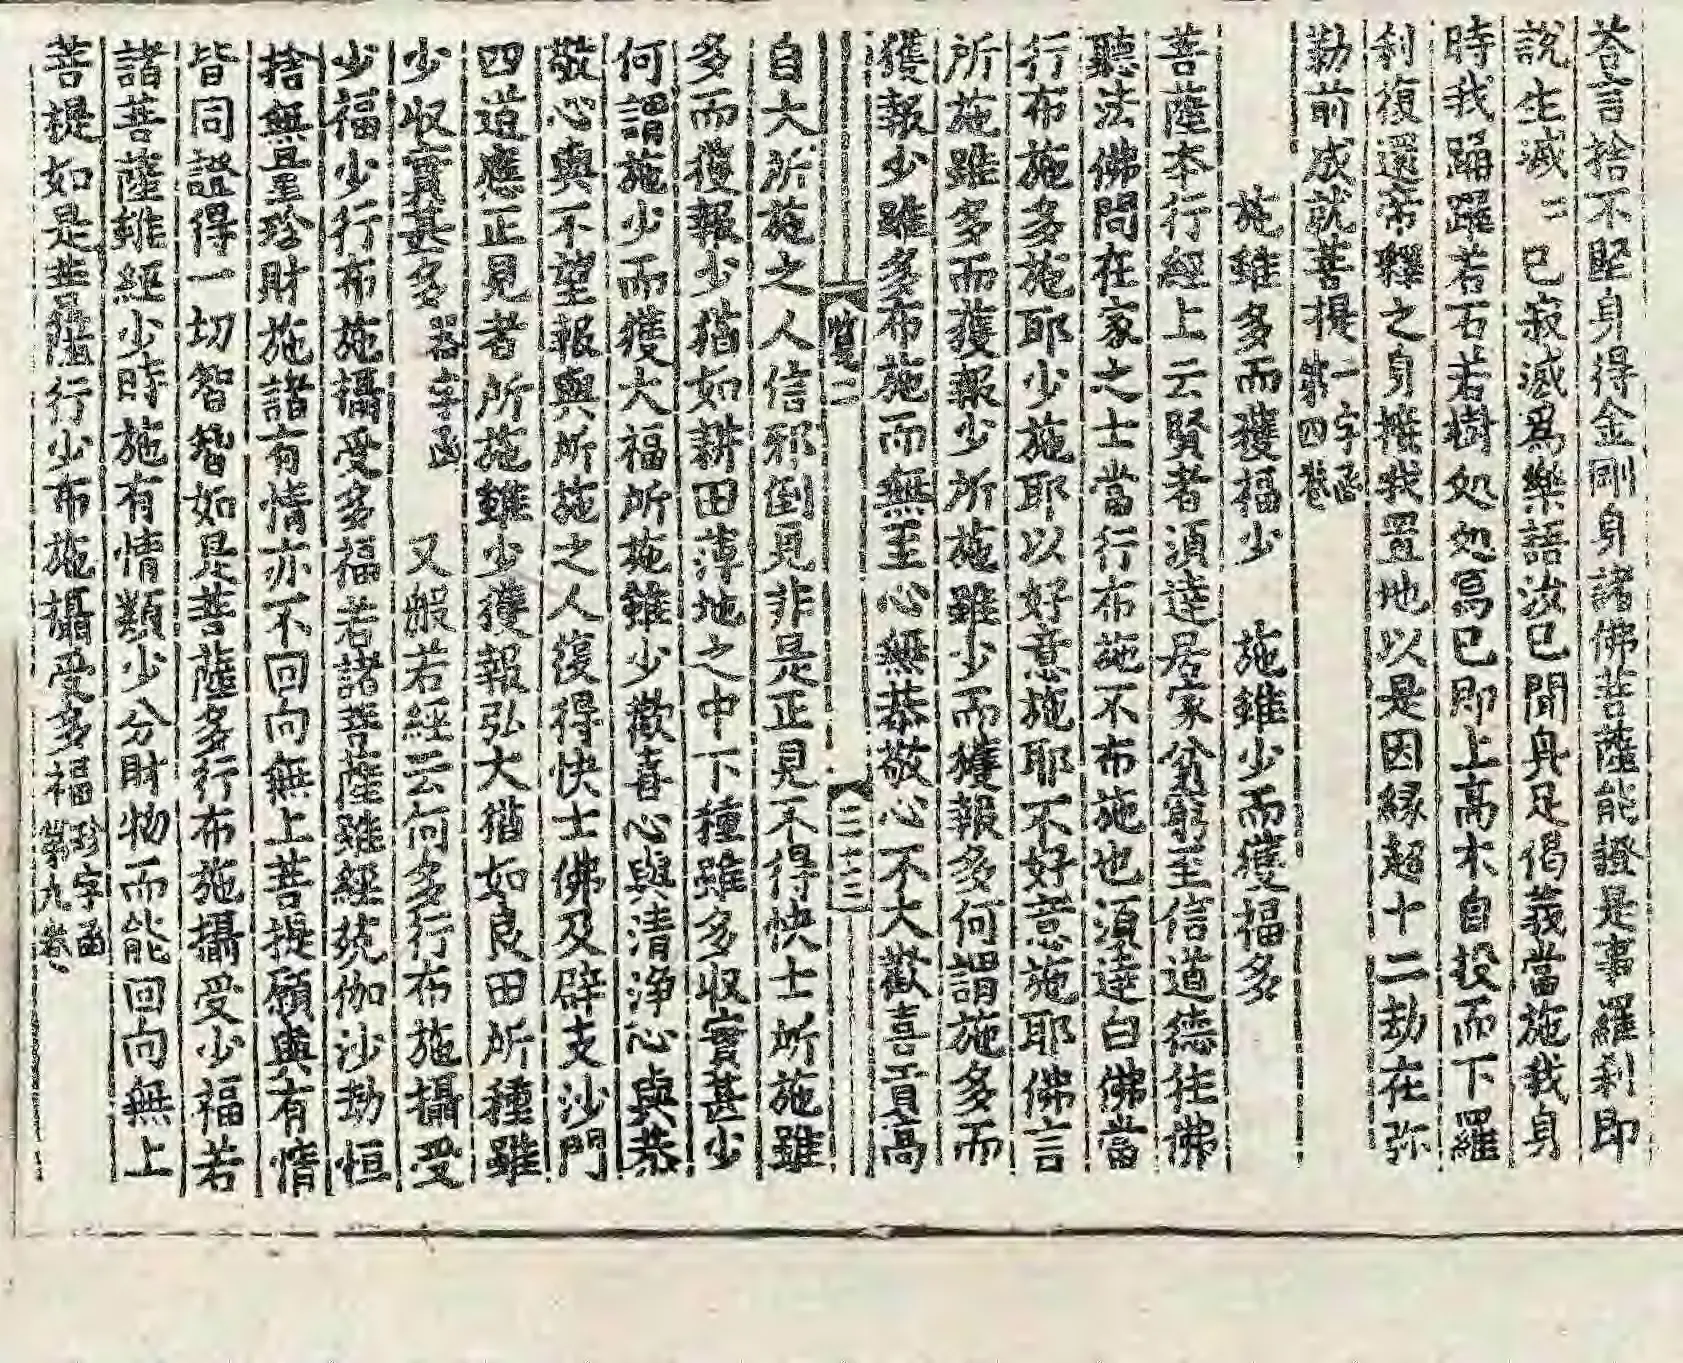 荅言捨不堅身得金剛身諸佛菩薩能證是事羅刹即
說生滅〻已寂滅爲樂語汝已聞具足偈義當施我身
時我踊躍若石若樹処処寫已即上高木自投而下羅
刹復還帝釋之身接我置地以是因緣超十二劫在弥
勒前成就菩提 字函第四卷
施雖多而獲福少 施雖少而獲福多
菩薩本行經上云賢者須達居家貧窮至信道德往佛
聽法佛問在家之士當行布施不布施也須達白佛當
行布施多施耶少施耶以好意施耶不好意施耶佛言
所施雖多而獲報少所施雖少而獲報多何謂施多而
獲報少雖多布施而無至心無恭敬心不大歡喜貢高
覽二 二十三
自大所施之人信邪倒見非是正見不得快士所施雖
多而獲報少猶如耕田薄地之中下種雖多収實甚少
何謂施少而獲大福所施雖少歡喜心與清淨心與恭
敬心與不望報與所施之人復得快士佛及辟支沙門
四道應正見者所施雖少獲報弘大猶如良田所種雖
少収實甚多 器字函 又般若經云何多行布施攝受
少福少行布施攝受多福若諸菩薩雖經殑伽沙劫恒
捨無量珍財施諸有情亦不回向無上菩提願與有情
皆同證得一切智智如是菩薩多行布施攝受少福若
諸菩薩雖經少時施有情類少分財物而能回向無上
菩提如是菩薩行少布施攝受多福 珍字函第九卷